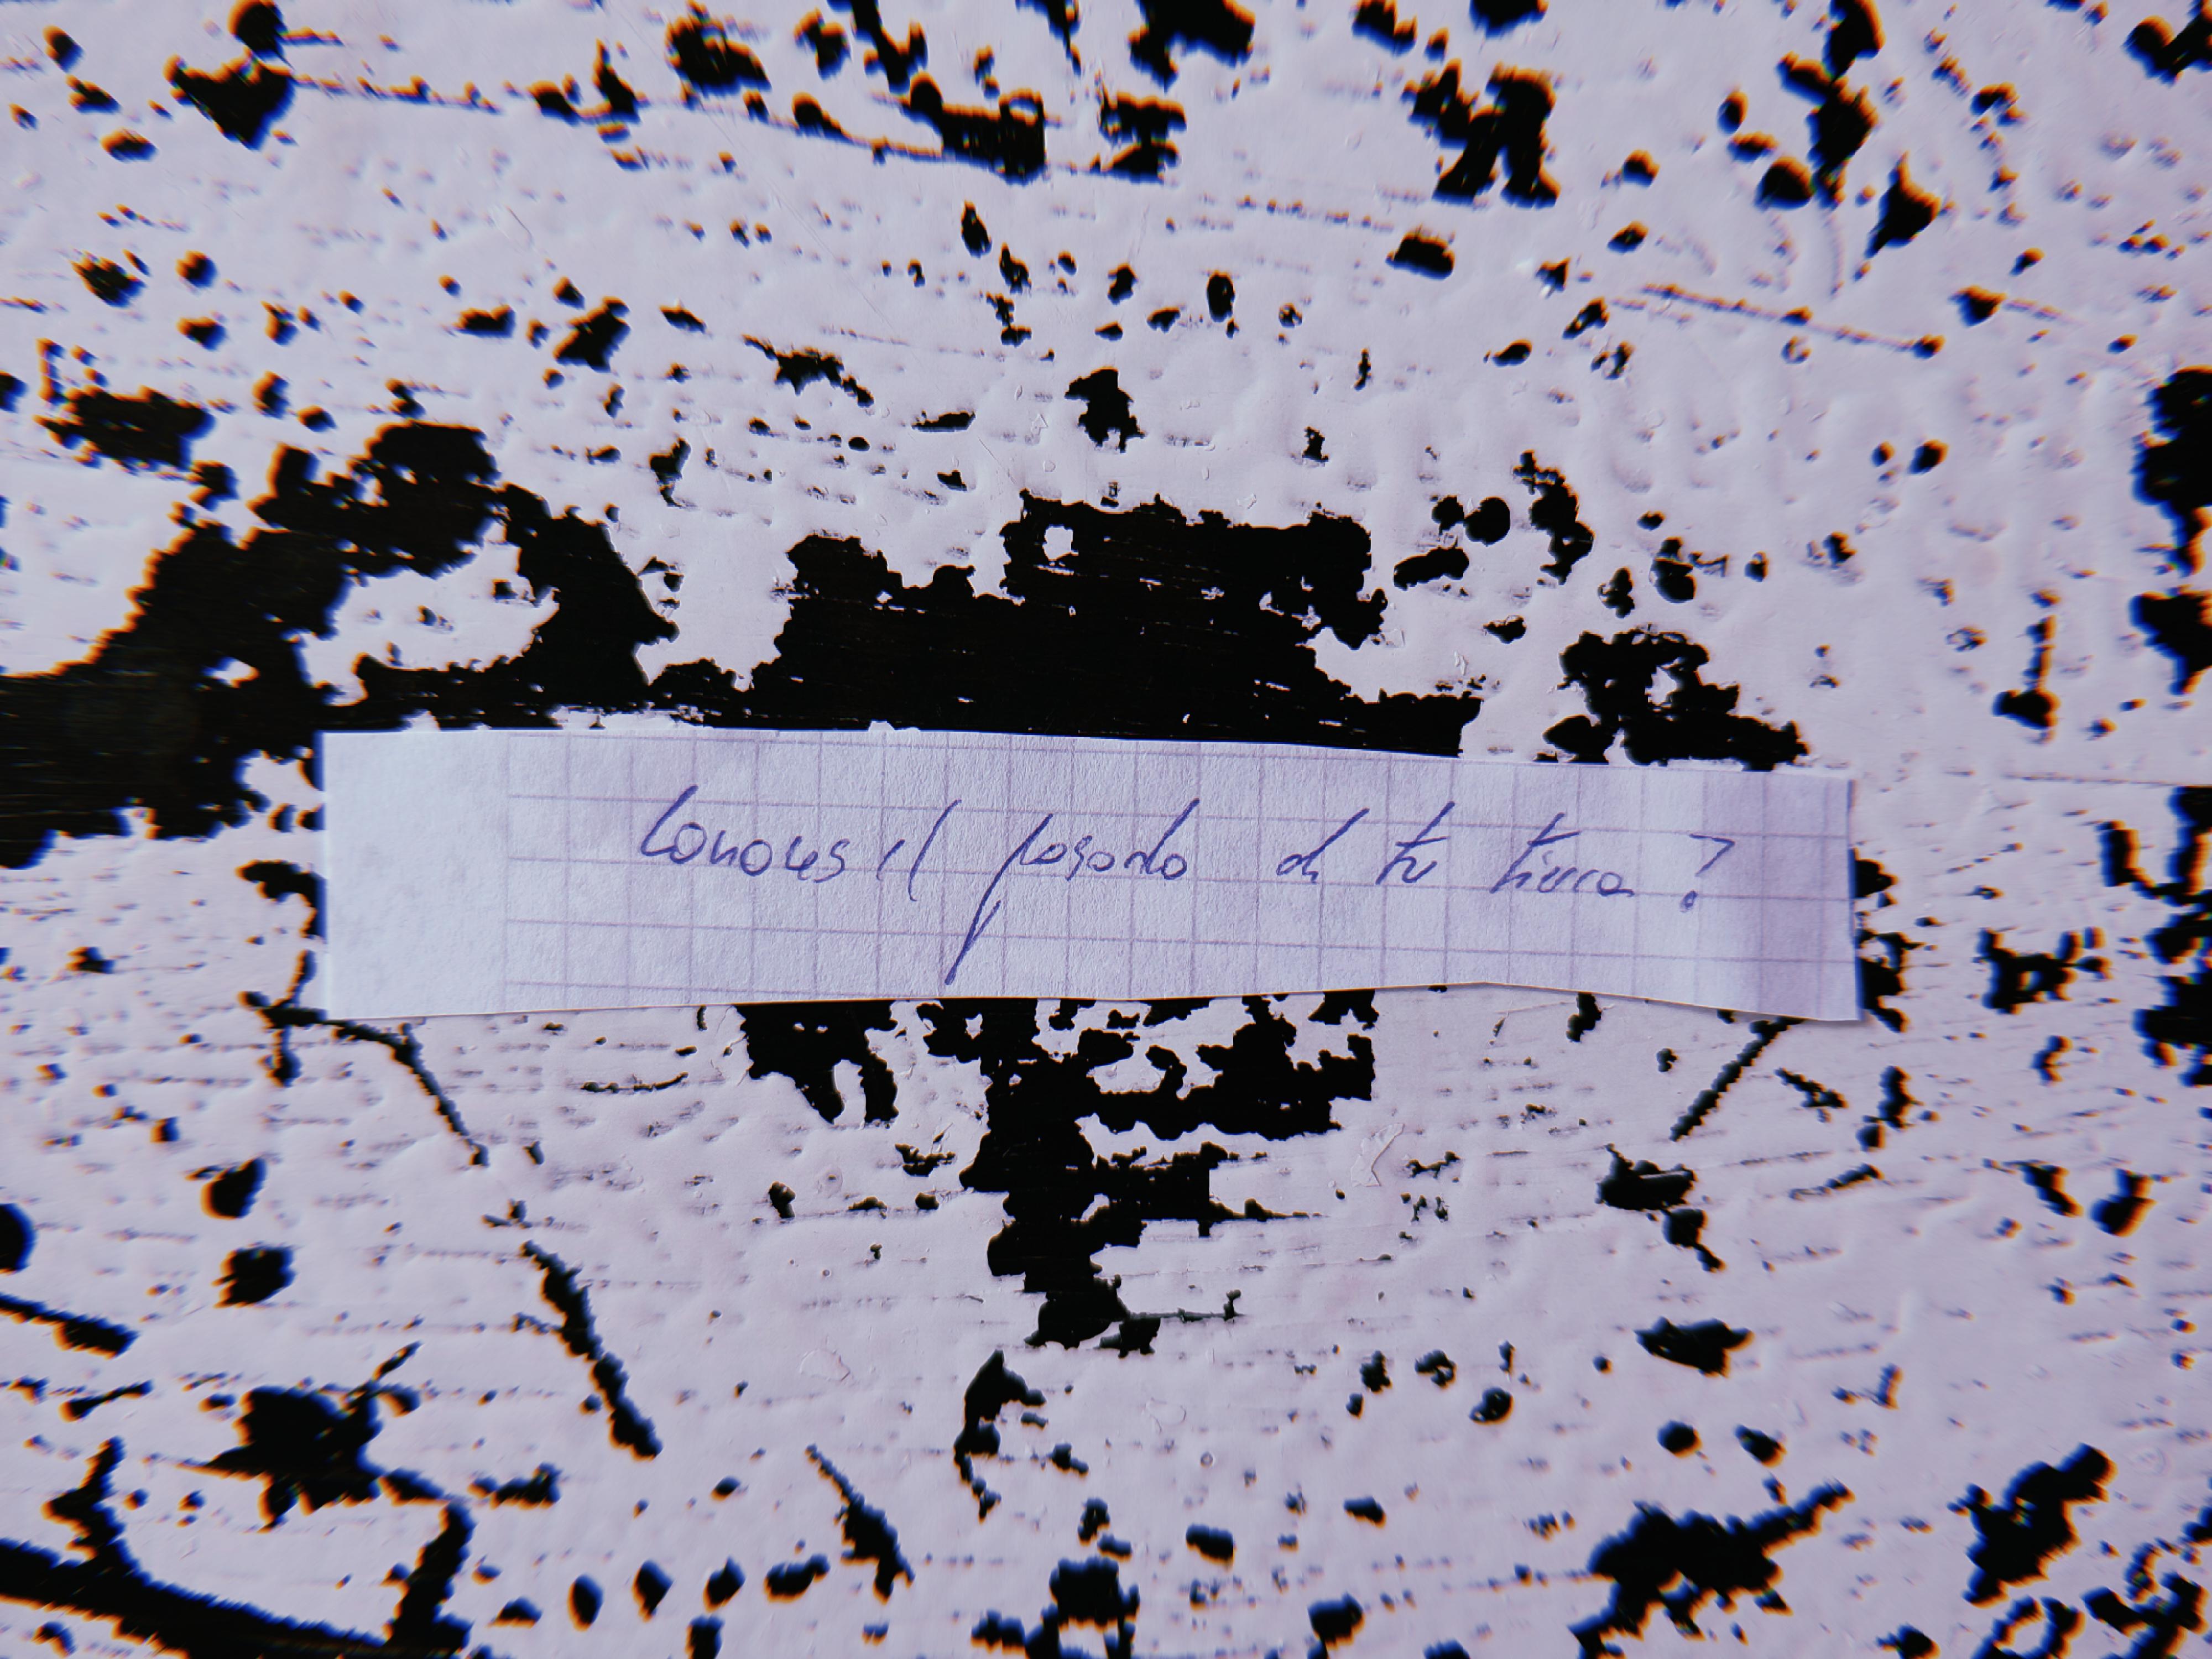 Conoces el pasado de tu tierra?